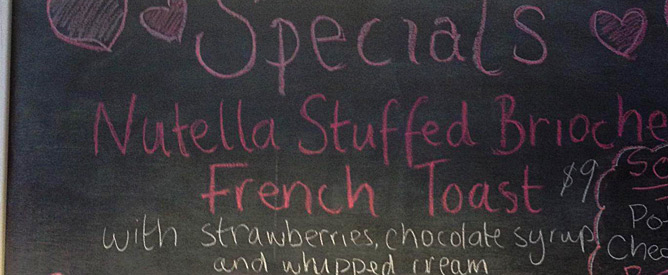 Specials
Nutella Stuffed Brioche
French Toast $9
with strawberries, chocolate syrup
and whipped cream